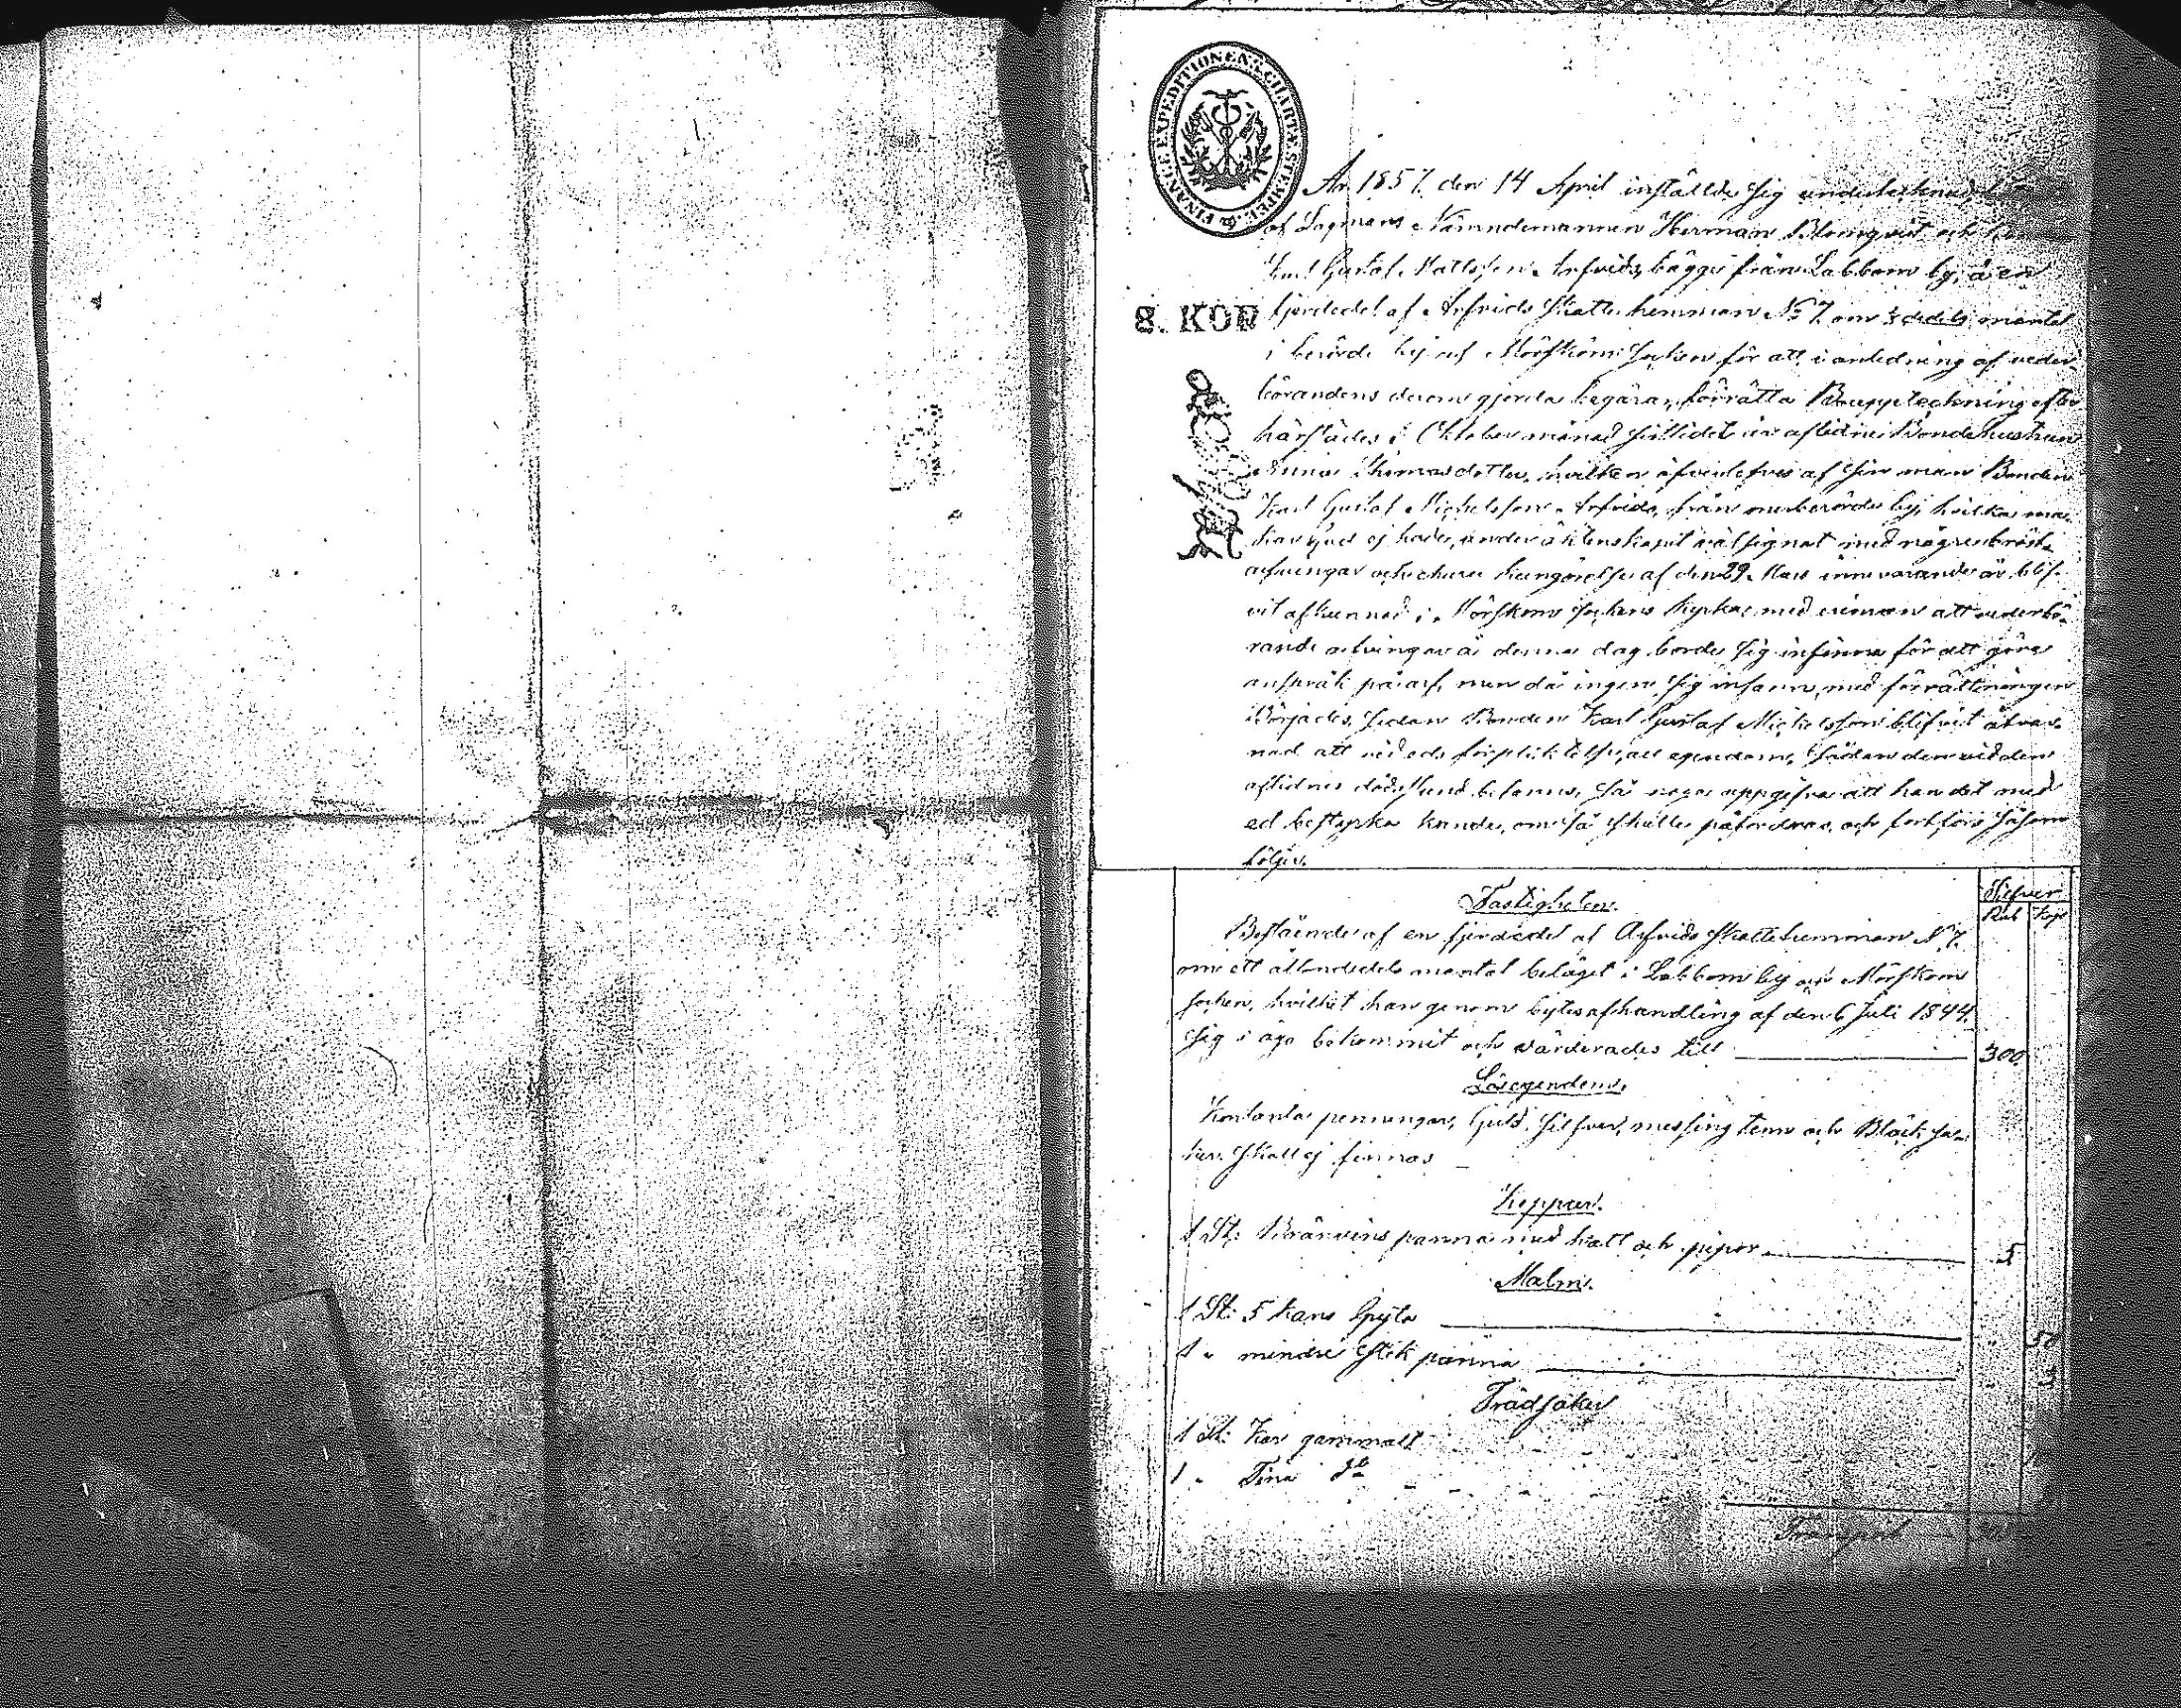 FINANCE EXPEDITIONENS CHARTÆ STEMPEL
År 1857 den 14 April inställde sig undertecknad
af Lagmans Nämndemannen Herman Blomqvist och
Karl Gustaf Mattsson Arfvids, bägge från Labbom by, å en
8. KOP
fjerdedel af Arfvids Skatte hemman No 7 om mantal
i berörde by af Mörskom Socken för att i anledning af veder-
börandens derom gjorda begäran, förrätta Bouppteckning efter
härstädes i Oktober månad sistlidet år aflidne Bondehustrun
Anna Thomasdotter, hvilken öfverlefves af sin man Bonden
Karl Gustaf Michelsson Arfvids, från merberörde by, hvilka ma-
kar Gud ej hade, under äktenskapet välsignat med några bröst-
arfvingar och churu kungörelse af den 29 Mars innevarande år blif-
vit afkunnad i Mörskom Sockens Kyrka, med att vederbö-
rande arfvingar å denna dag borde sig infinna för att göra
anspråk på arf, men då ingen sig infann, med förrättningen
Börjades, sedan Bonden Karl Gustaf Michelsson blifvit åtvar-
nad att vid eds förpliktelse, all egendom, sådan den vid den
aflidnes dödsstund befanns, så noga uppgifva att han det med
ed bestyrka kunde, om så skulle påfordras, och fortfors såsom
följer.
Fastigheten.
Silfver
Rub Kop
Bestående af en fjerdedel af Arfvids Skattehemman No 7.
om ett åttondedels mantal beläget i Labbom by och Mörskom
Socken, hvilket han genom bytesafhandling af den 6 Juli 1844
sig i ägo bekommit och värderades till 300
Lösegendom.
Kontanta penningar, Guld, Silfver, messing tenn och Bläck sa-
ker skall ej finnas
Koppar.
1 St: Bränvins panna med hatt och pipor 5
Malm.
1 St: 5 kans Gryta 50
1 " mindre Stek panna 3
Trädsaker
1 St: Kar gammalt
1 " Tina do
Transport